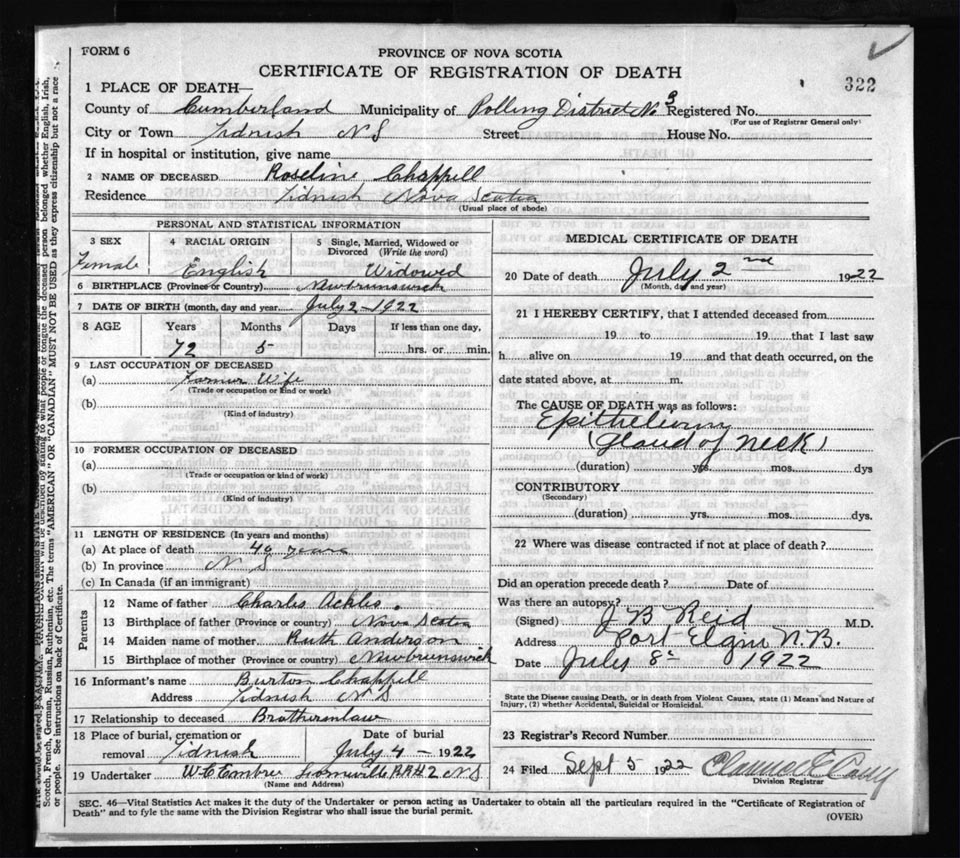 FORM 6
PROVINCE OF NOVA SCOTIA
CERTIFICATE OF REGISTRATION OF DEATH
322
1 PLACE OF DEATH—
County of Cumberland Municipality of Polling District No 3 Registered No.
(For use of Registrar General only)
City or Town Tidnish N S Street House No.
If in hospital or institution, give name
2 NAME OF DECEASED Roseline Chappell
Residence Tidnish Nova Scotia
(Usual place of abode)
PERSONAL AND STATISTICAL INFORMATION
3 SEX Female
4 RACIAL ORIGIN English
5 Single, Married, Widowed or Divorced (Write the word) Widowed
6 BIRTHPLACE (Province or Country) Newbrunswick
7 DATE OF BIRTH (month, day and year) July 2 - 1922
8 AGE Years Months Days If less than one day,
72 5 hrs. or min.
9 LAST OCCUPATION OF DECEASED
(a) Farmer Wife
(Trade or occupation or kind or work)
(b)
(Kind of industry)
10 FORMER OCCUPATION OF DECEASED
(a)
(Trade or occupation or kind of work)
(b)
(Kind of industry)
11 LENGTH OF RESIDENCE (In years and months)
(a) At place of death 40 years
(b) In province N S
(c) In Canada (if an immigrant)
Parents
12 Name of father Charles Ackles.
13 Birthplace of father (Province or country) Nova Scotia
14 Maiden name of mother Ruth Anderson
15 Birthplace of mother (Province or country) Newbrunswick
16 Informant's name Burton Chappell
Address Tidnish N S
17 Relationship to deceased Brotherinlaw
18 Place of burial, cremation or removal Tidnish Date of burial July 4 - 1922
19 Undertaker W C Embree RR #2 N S
(Name and Address)
MEDICAL CERTIFICATE OF DEATH
20 Date of death July 2nd 1922
(Month, day and year)
21 I HEREBY CERTIFY, that I attended deceased from
19 to 19 that I last saw
h alive on 19 and that death occurred, on the
date stated above, at m.
The CAUSE OF DEATH was as follows:
Epithelioma
(gland of neck)
(duration) yrs. mos. dys
CONTRIBUTORY
(Secondary)
(duration) yrs. mos. dys.
22 Where was disease contracted if not at place of death?
Did an operation precede death? Date of
Was there an autopsy?
(Signed) J B Reid M.D.
Address Port Elgin N.B.
Date July 8 1922
State the Disease causing Death, or in death from Violent Causes, state (1) Means and Nature of
Injury, (2) whether Accidental, Suicidal or Homicidal.
23 Registrar's Record Number
24 Filed Sept 5 1922
Division Registrar
SEC. 46—Vital Statistics Act makes it the duty of the Undertaker or person acting as Undertaker to obtain all the particulars required in the "Certificate of Registration of
Death" and to fyle the same with the Division Registrar who shall issue the burial permit.
(OVER)
Scotch, French, German, Russian, Ruthenian, etc. The terms "AMERICAN" OR "CANADIAN" MUST NOT BE USED as they express citizenship but not a race
or people. See instructions on back of Certificate.